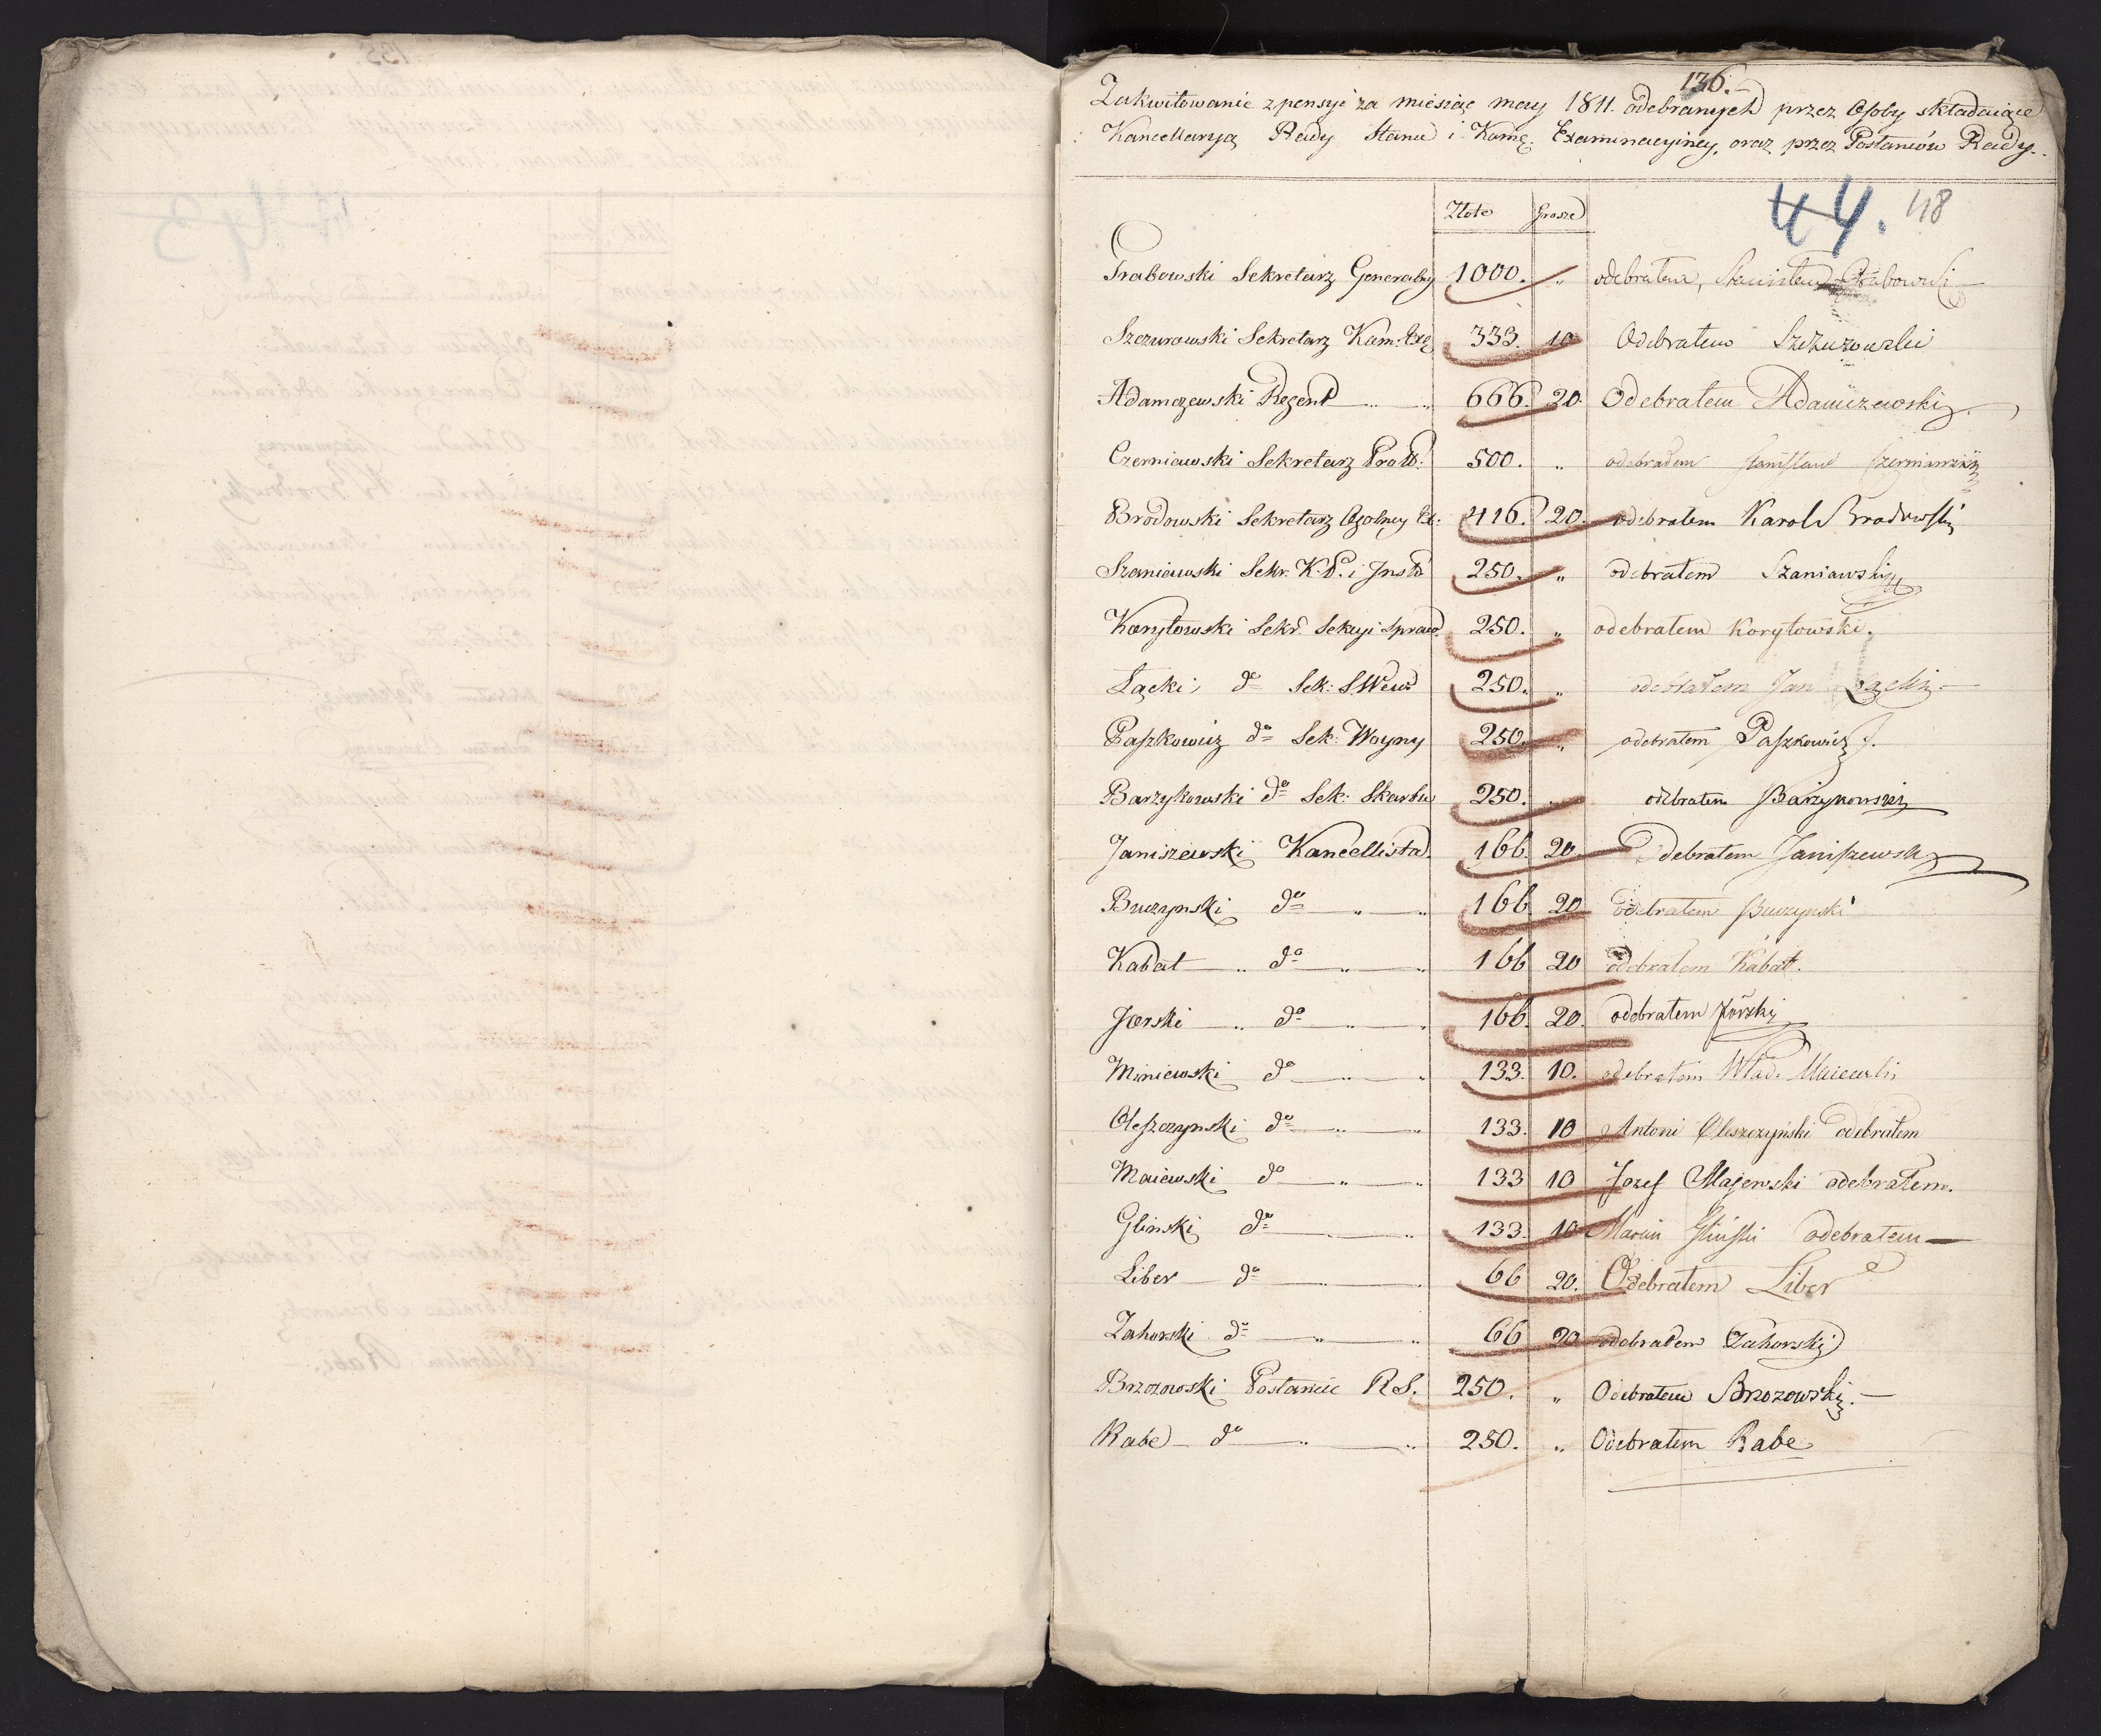 136.
Zakwitowanie z pensyi za miesiąc may 1811. odebranych przez Osoby składaiące
Kancellaryą Rady Stanu i Komę. Examinacyiney, oraz przez Posłańców Rady.
Złote Grosze
44. 48
Grabowski Sekretarz Generalny 1000. „ odebrałem, Stanisław Grabowski
Szczurowski Sekretarz Kom: Exą 333. 10 Odebrałem Szczurowski
Adamczewski Regent „ „ 666. 20. Odebrałem Adamczewski
Czerniawski Sekretarz Prot: 500. „ odebrałem Stanisław Czerniawski
Brodowski Sekretarz Ogolney Ex: 416. 20. odebrałem Karol Brodowski
Szaniawski Sekr. K. P. i Inst 250. „ odebrałem Szaniawski
Korytowski Sekr. Sekcyi Spraw. 250. „ odebrałem Korytowski.
Łącki, do Sek: S Wew 250. „ odebrałem Jan Łącki
Paszkowicz do Sek: Woyny 250. „ odebrałem Paszkowicz J.
Barzykowski do Sek: Skarbu 250. „ odebrałem Barzykowski
Janiszewski Kancellista 166 20 Odebrałem Janiszewski
Buczynski do „ „ 166 20 odebrałem Buczynski
Kabat „ do „ „ 166 20 odebrałem Kabat.
Jorski „ do „ „ 166. 20. odebrałem Jórski
Miniewski do „ „ 133. 10. odebrałem Wład.
Oleszczynski do „ „ 133. 10 Antoni Oleszczyński odebrałem
Maiewski do „ „ 133 10 Jozef Majewski odebrałem.
Glinski do „ „ 133. 10 Marcin Gliński odebrałem
Liber do „ „ 66 20. Odebrałem Liber
Zahorski do „ „ 66 20 odebrałem Zahorski
Brzozowski Posłaniec R S. 250. „ Odebrałem Brzozowski.
Rabe do „ „ 250. „ Odebrałem Rabe